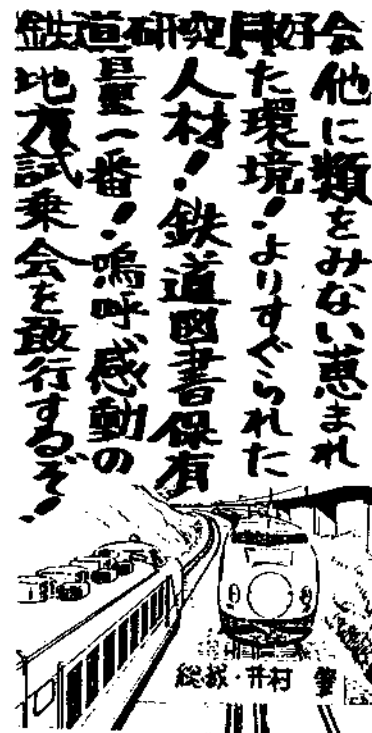 鉄道研究同好会
他に類をみない恵まれ
た環境！よりすぐられた
人材！鉄道図書保有
量一番！嗚呼、感動の
地方試乗会を敢行するぞ！
井村 筆